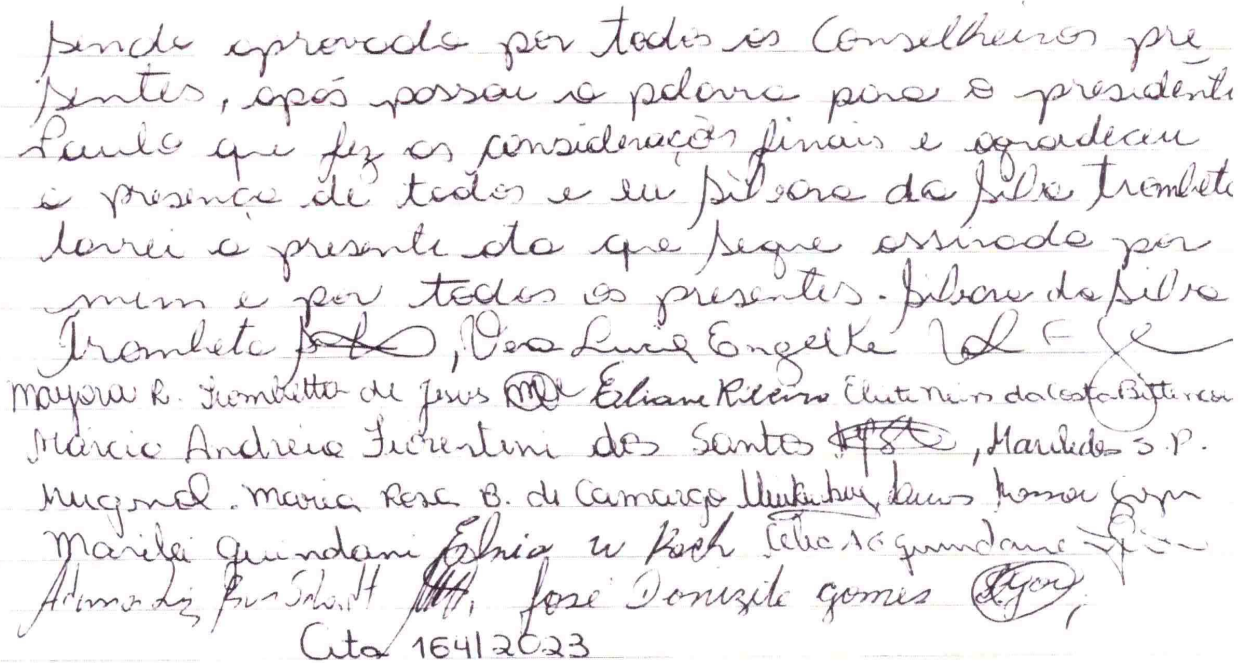 sendo aprovada por todos os Conselheiros pre
sentes, após passou a palavra para o presidente
Paulo que fez as considerações finais e agradeceu
a presença de todos e eu Silvana da Silva Trombeta
lavrei a presente ata que segue assinada por
mim e por todos os presentes. Silvana da Silva
Trombeta, Vera Lucia Engelke
Mayara R. Trombetta de Jesus Eliane Ribeiro da Costa Bittencou
Márcia Andreia Fiorentini dos Santos, Mariledes S. P.
Mugnol. Maria Rosa B. de Camargo
Marilei Guindani W Koch Guindani
José Donizete Gomes
Ata 164/2023